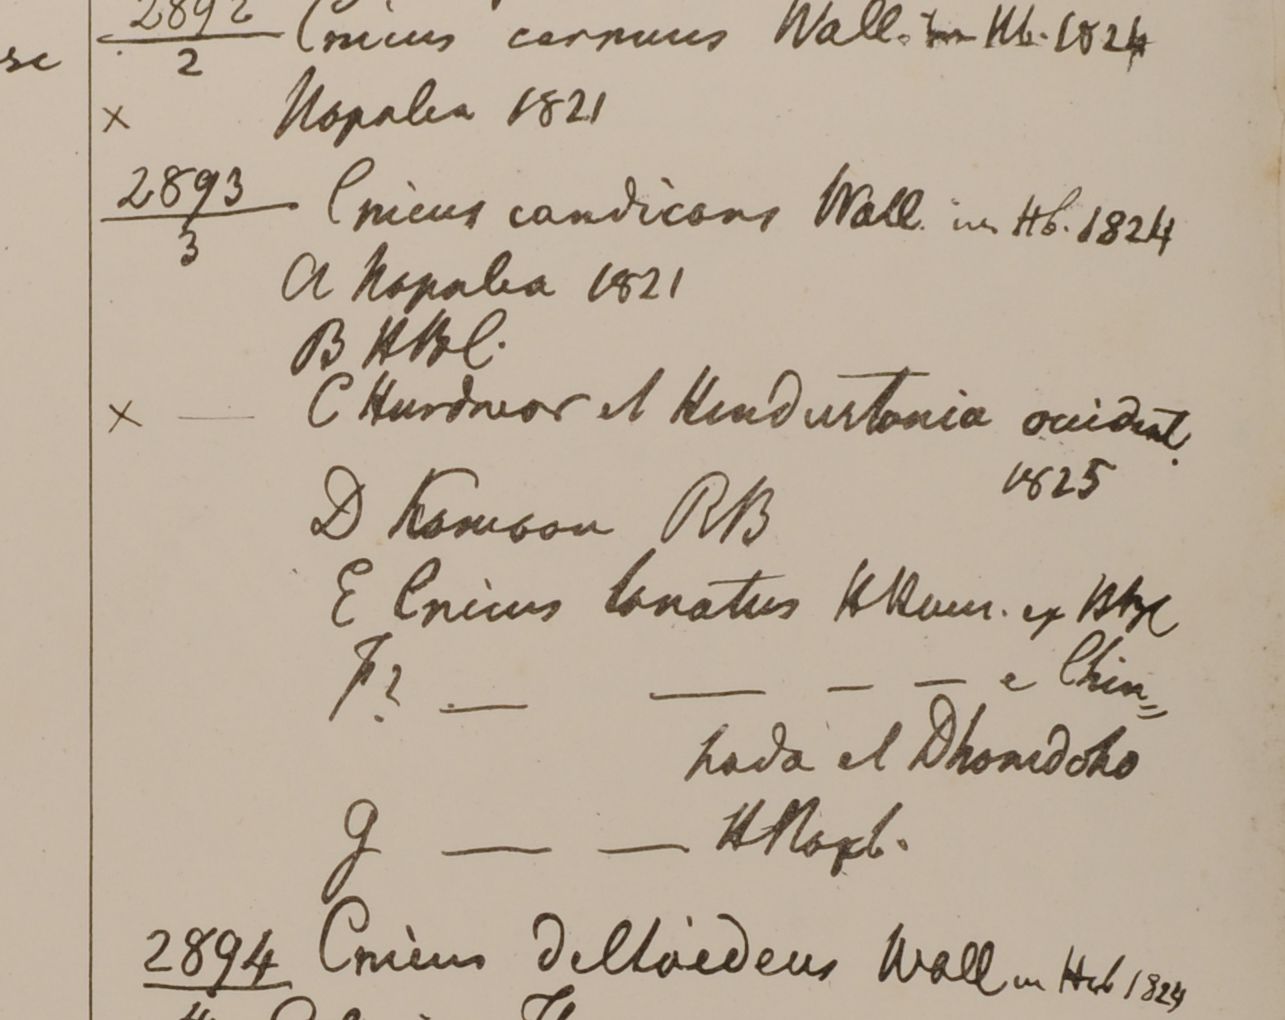 se
2892 Cnicus cernuus Wall. in Hb. 1824
2
× Napalea 1821
2893 Cnicus candicans Wall. in Hb. 1824
3
a Napalea 1821
B HBC.
× — C Hurdwar et Hindustania occident.
1825
D Kamaon RB
E Cnicus lanatus HHam. ex
F? — — — — e Chin=
hada et
g — — HRoxb.
2894 Cnicus deltoideus Wall in Herb 1824